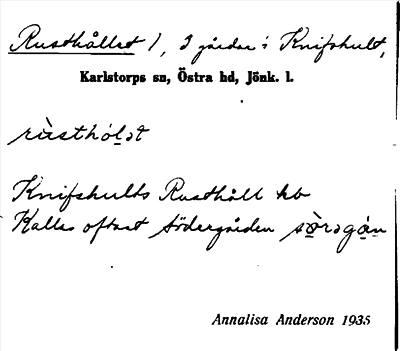 Rusthållet 1, 3 gårdar i Knifshult,
Karlstorps sn, Östra hd, Jönk. l.
rùsthólət
Knifshults Rusthåll kb
Kallas oftast Södergården sò̱rəgá̱n
Annalisa Anderson 1935